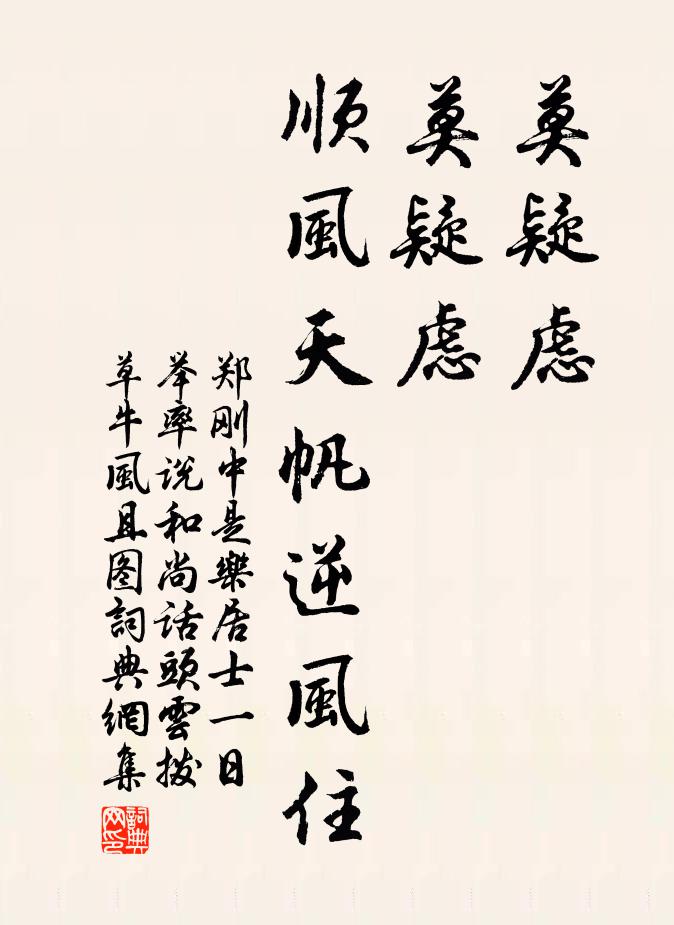 莫疑虑
莫疑虑
順風天帆逆風住
郑刚中是樂居士一日
举率说和尚话頭雲拨
草牛風且图詞典網集
詞典網印